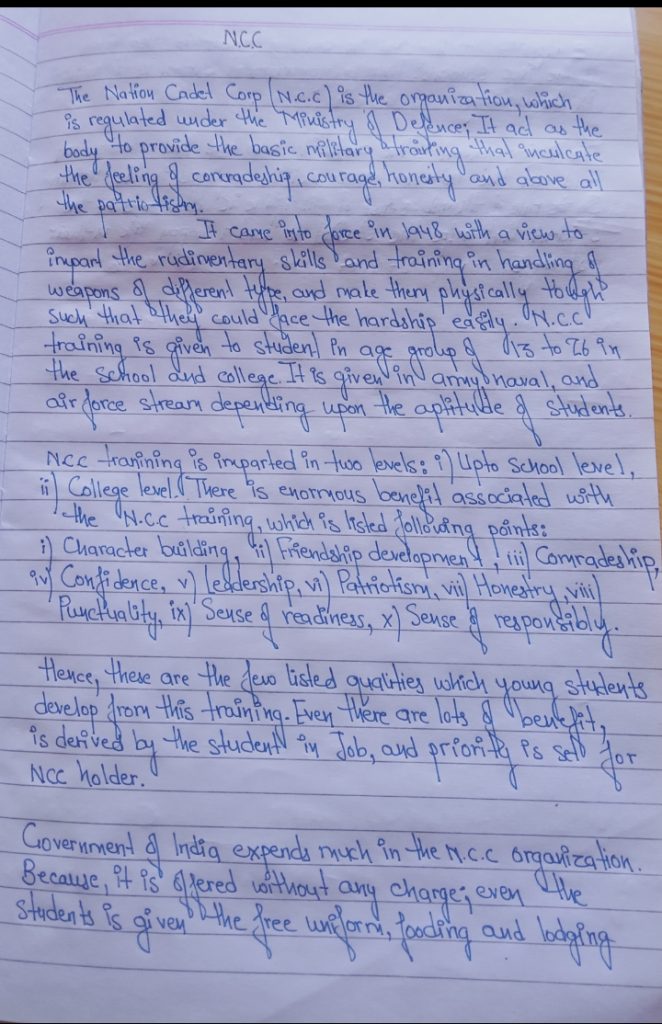 N.C.C
The Nation Cadet Corp (N.C.C) is the organization, which
is regulated under the Ministry of Defence; It act as the
body to provide the basic military training that inculcate
the feeling of comradeship, courage, honesty and above all
the patriotism.
It came into force in 1948 with a view to
impart the rudimentary skills and training in handling of
weapons of different type, and make them physically tough
such that they could face the hardship easily. N.C.C
training is given to student in age group of 13 to 26 in
the school and college. It is given in army naval, and
air force stream depending upon the aptitude of students.
NCC tranining is imparted in two levels: i) Upto school level,
ii) College level. There is enormous benefit associated with
the N.C.C training, which is listed following points:
i) Character building, ii) Friendship development, iii) Comradeship,
iv) Confidence, v) Leadership, vi) Patriotism, vii) Honestry, viii)
Punctuality, ix) Sense of readiness, x) Sense of responsibly.
Hence, these are the few listed qualities which young students
develop from this training. Even there are lots of benefit,
is derived by the student in Job, and priority is set for
NCC holder.
Government of India expends much in the N.C.C organization.
Because, it is offered without any charge; even the
students is given the free uniform, fooding and lodging